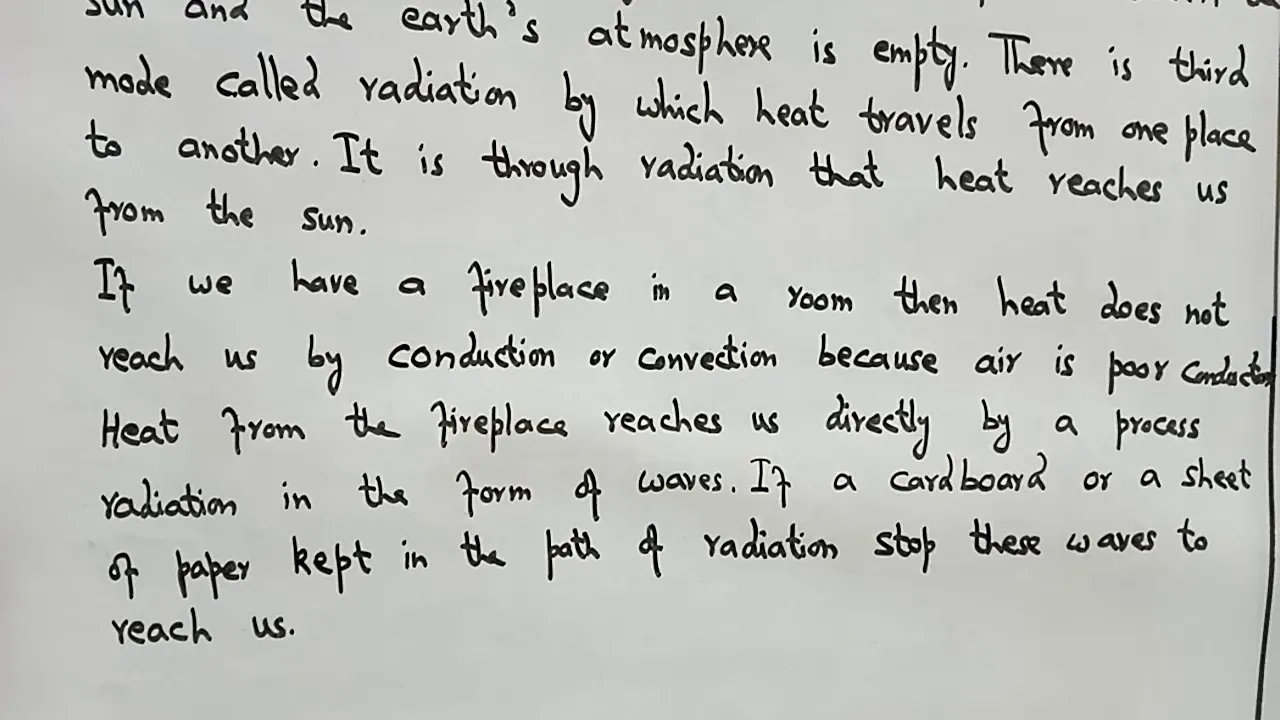 sun and the earth's atmosphere is empty. There is third
mode called radiation by which heat travels from one place
to another. It is through radiation that heat reaches us
from the sun.
If we have a fireplace in a room then heat does not
reach us by conduction or convection because air is poor conductor
Heat from the fireplace reaches us directly by a process
radiation in the form of waves. If a cardboard or a sheet
of paper kept in the path of radiation stop these waves to
reach us.